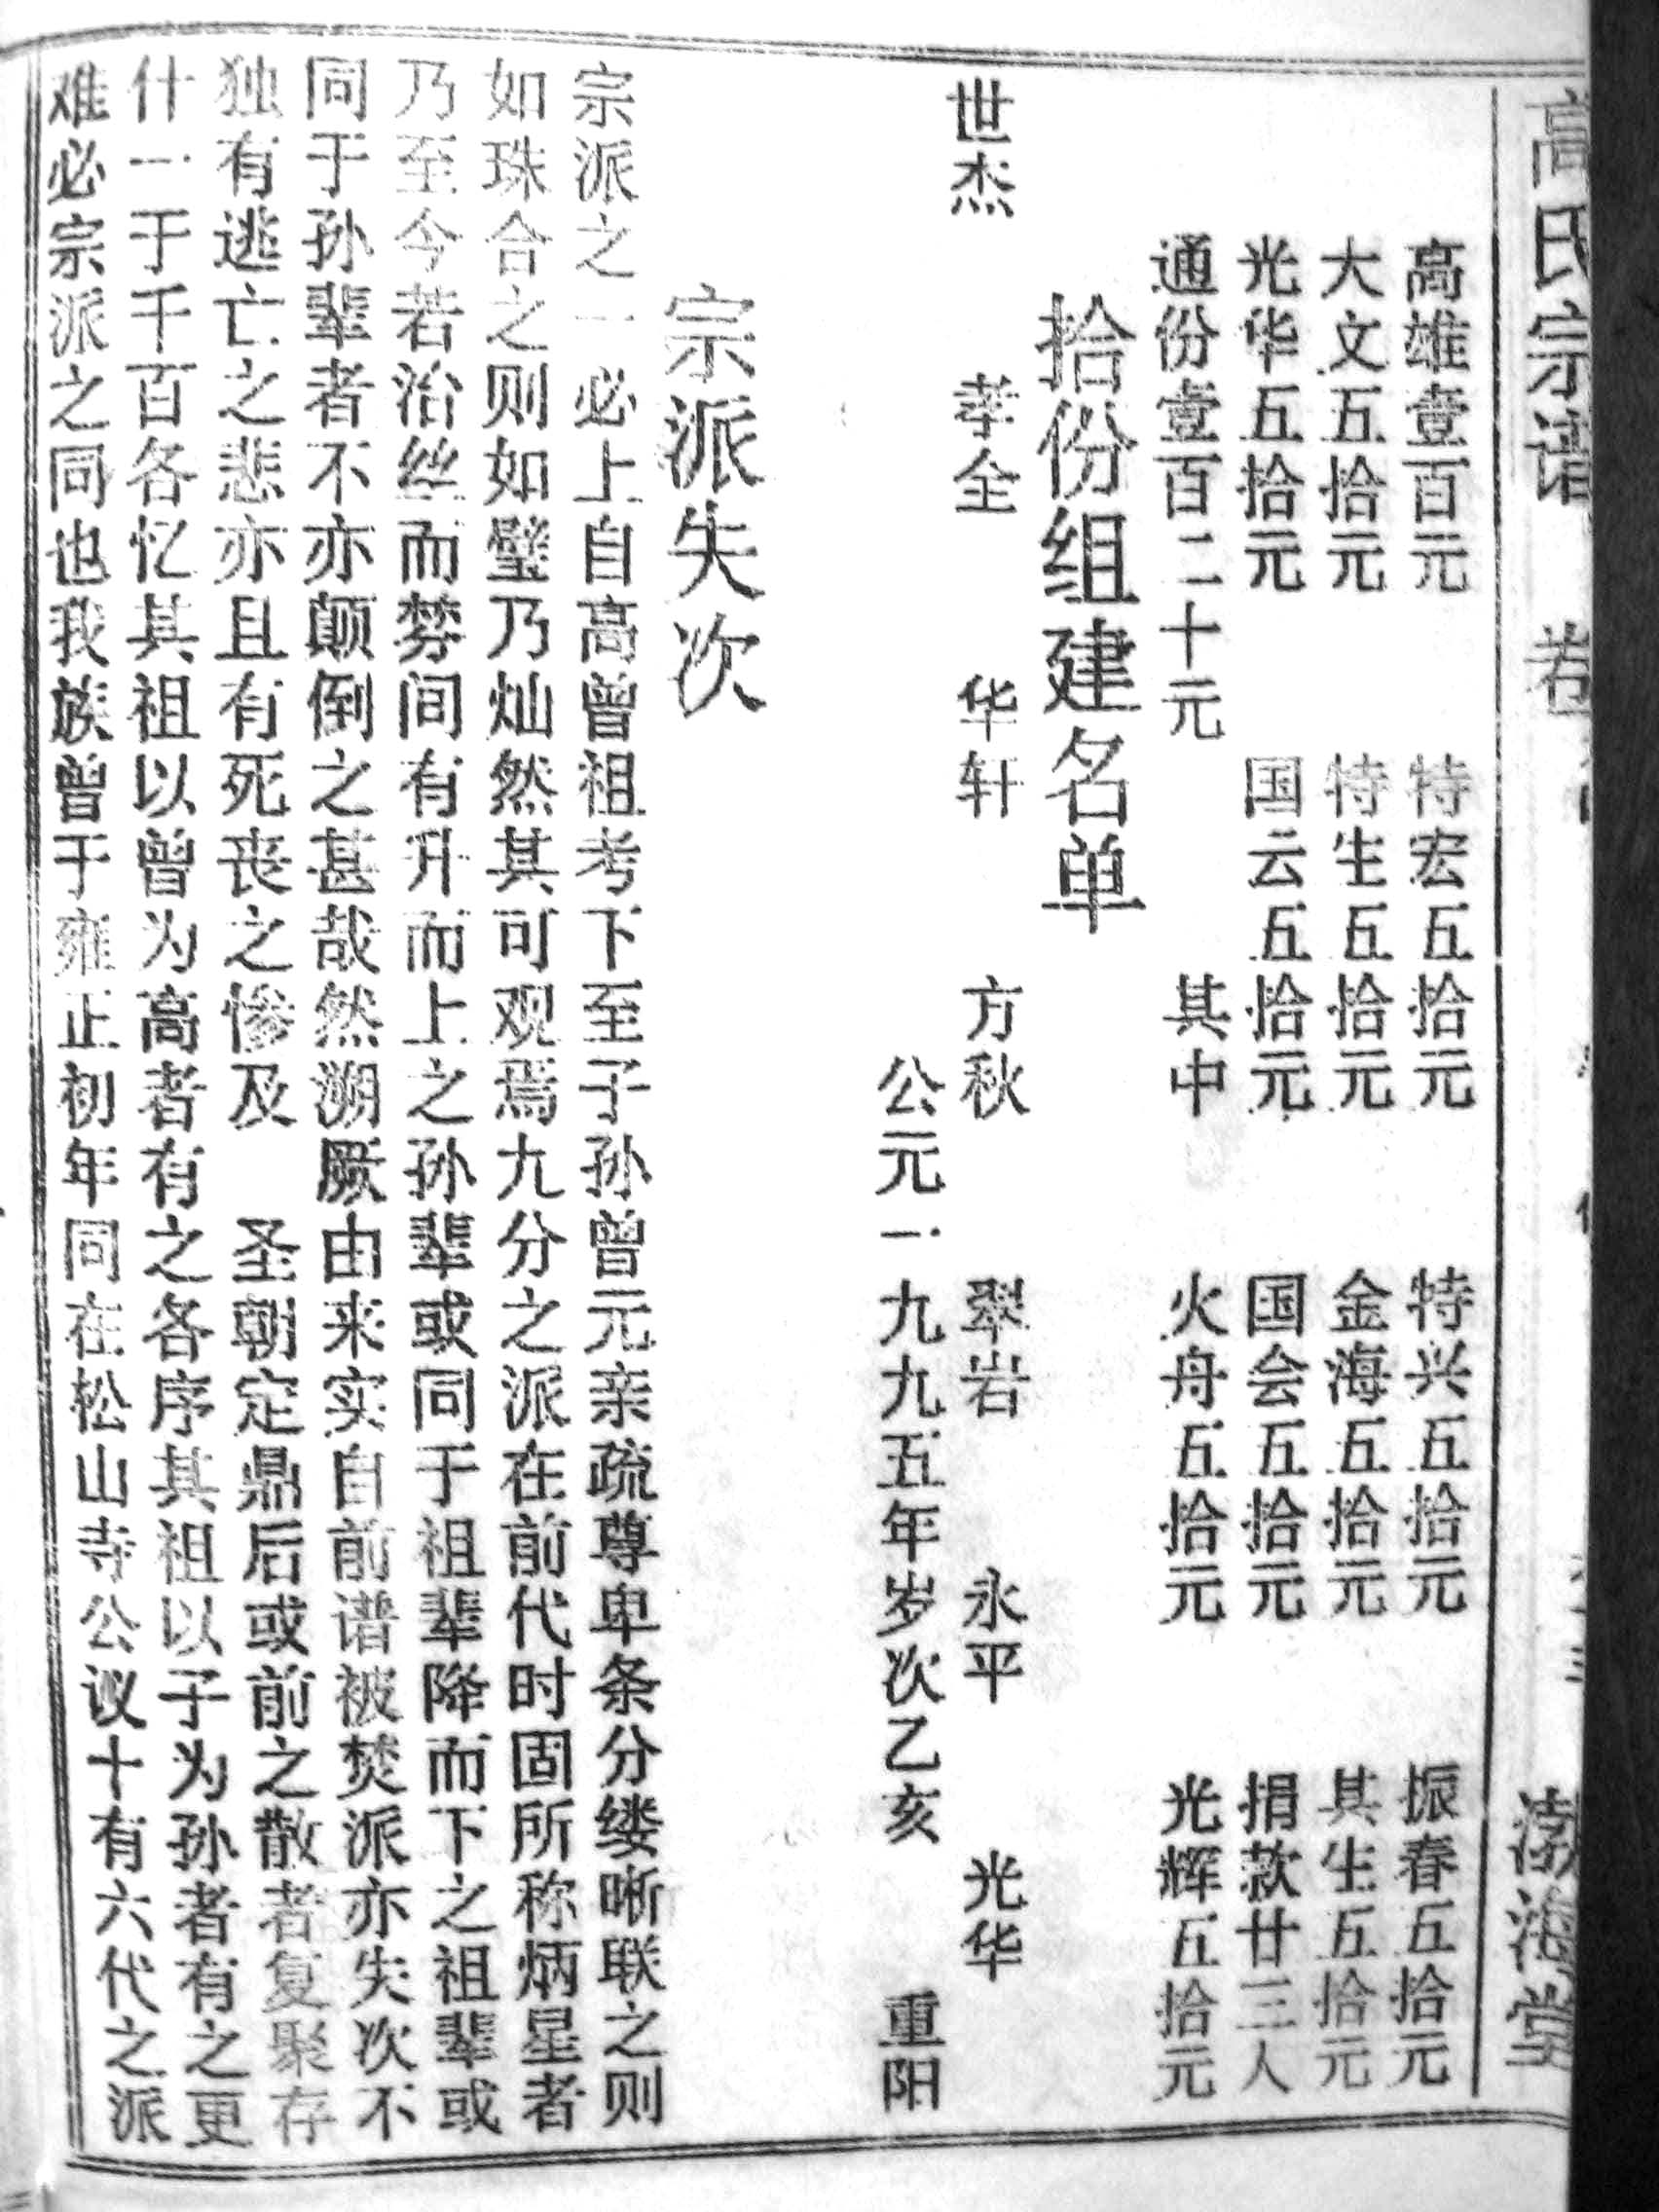 高氏宗谱 卷 渤海堂
高雄壹百元 特宏五拾元 特兴五拾元 振春五拾元
大文五拾元 特生五拾元 金海五拾元 其生五拾元
光华五拾元 国云五拾元 国会五拾元 捐款廿三人
通份壹百二十元 其中 火舟五拾元 光辉五拾元
拾份组建名单
世杰 孝全 华轩 方秋 翠岩 永平 光华
公元一九九五年岁次乙亥 重阳
宗派失次
宗派之一必上自高曾祖考下至子孙曾元亲疏尊卑条分缕晰联之则
如珠合之则如璧乃灿然其可观焉九分之派在前代时固所称炳星者
乃至今若治丝而棼间有升而上之孙辈或同于祖辈降而下之祖辈或
同于孙辈者不亦颠倒之甚哉然溯厥由来实自前谱被焚派亦失次不
独有逃亡之悲亦且有死丧之惨及 圣朝定鼎后或前之散者复聚存
什一于千百各忆其祖以曾为高者有之各序其祖以子为孙者有之更
难必宗派之同也我族曾于雍正初年同在松山寺公议十有六代之派